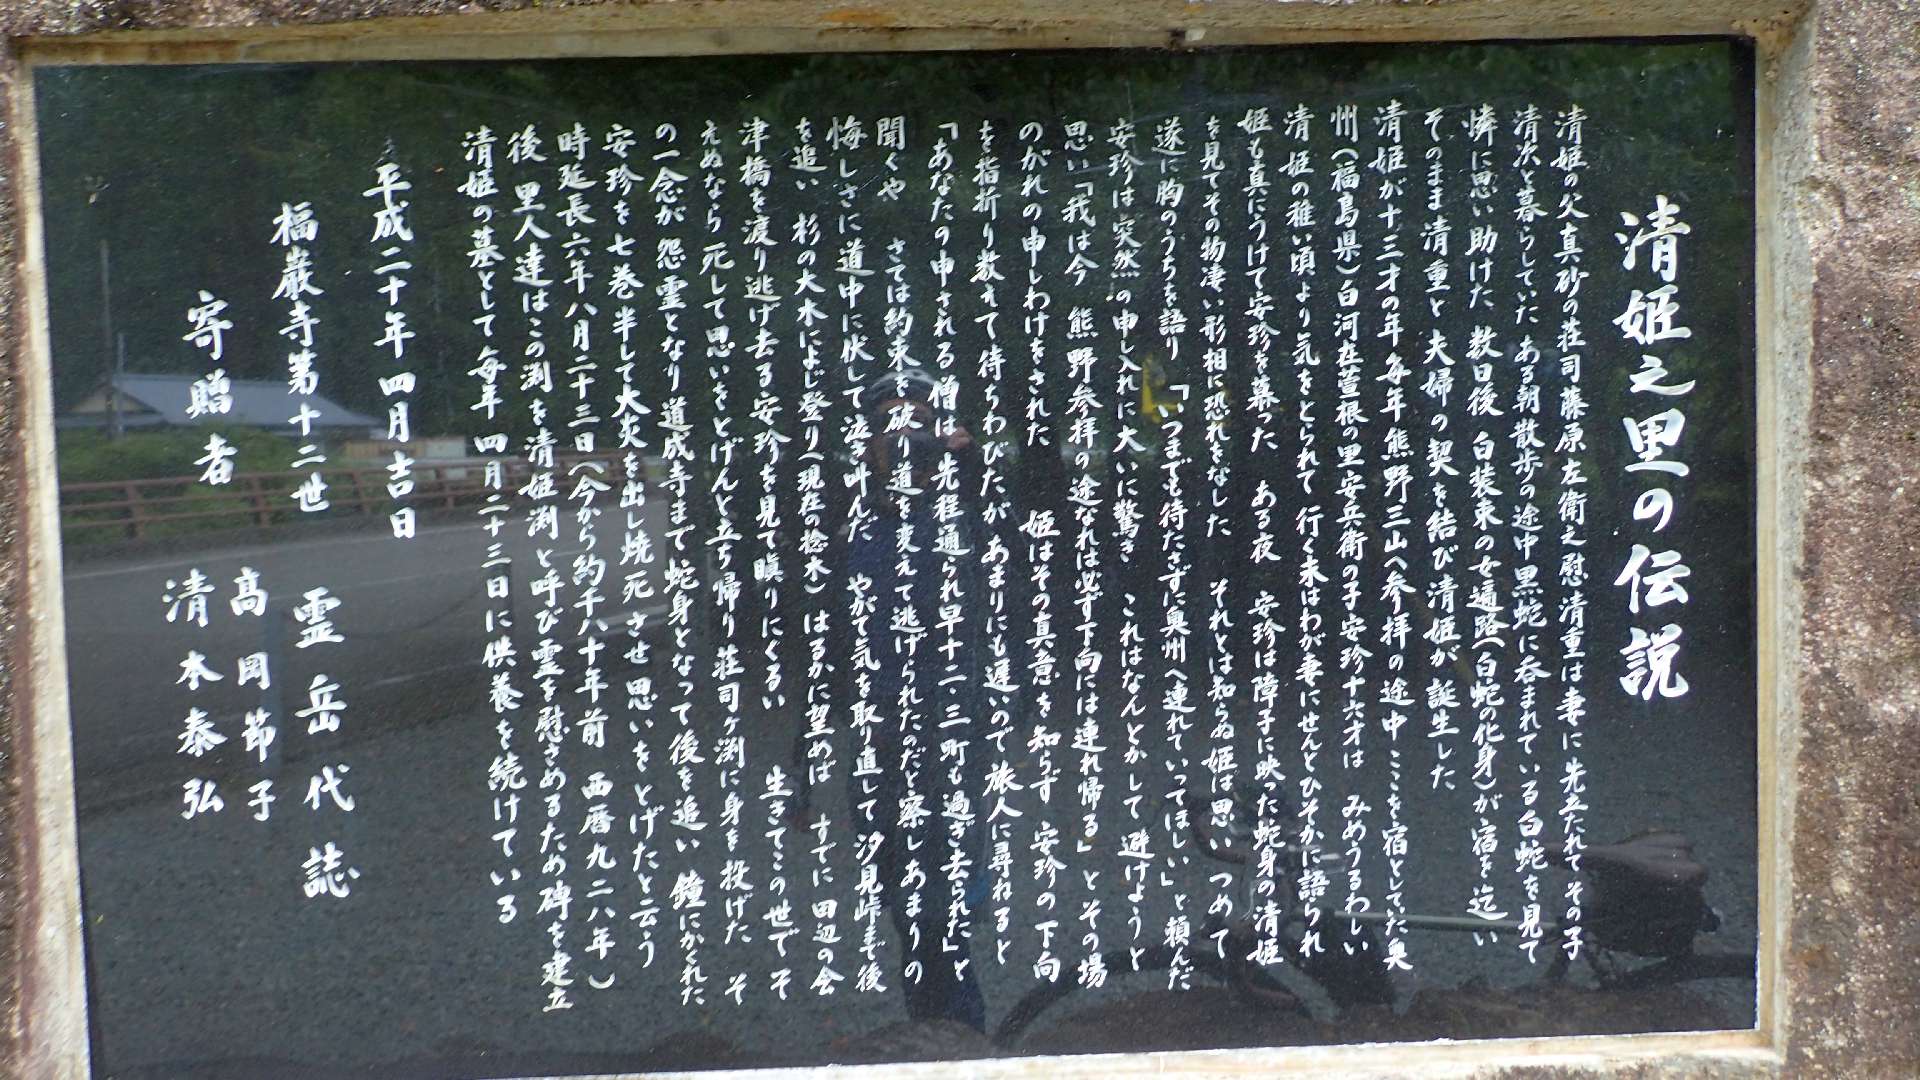 清姫之里の伝説
清姫の父真砂の荘司藤原左衛之慰清重は妻に先立たれてその子
清次と暮らしていた ある朝散歩の途中黒蛇に呑まれている白蛇を見て
憐に思い助けた 数日後 白装束の女遍路(白蛇の化身)が宿を迄い
そのまま清重と夫婦の契を結び清姫が誕生した
清姫が十三才の年毎年熊野三山へ参拝の途中ここを宿としていた奥
州(福島県)白河在萱根の里安兵衛の子安珍十六才は みめうるわしい
清姫の稚い頃より気をとられて行く末はわが妻にせんとひそかに語られ
姫も真にうけて安珍を慕った ある夜 安珍は障子に映った蛇身の清姫
を見てその物凄い形相に恐れをなした それとは知らぬ姫は思いつめて
遂に胸のうちを語り「いつまでも待たさずに奥州へ連れていってほしい」と頼んだ
安珍は突然の申し入れに大いに驚き これはなんとかして避けようと
思い「我は今 熊野参拝の途なれば必ず下向には連れ帰る」とその場
のがれの申しわけをされた 姫はその真意を知らず 安珍の下向
を指折り数えて待ちわびたが あまりにも遅いので旅人に尋ねると
「あなたの申される僧は 先程通られ早十二・三町も過ぎ去られた」と
聞くや さては約束を破り道を変えて逃げられたのだと察しあまりの
悔しさに道中に伏して泣き叫んだ やがて気を取り直して汐見峠まで後
を追い 杉の大木によじ登り(現在の捻木)はるかに望めば すでに田辺の会
津橋を渡り逃げ去る安珍を見て瞋りにくるい 生きてこの世でそ
えぬなら死して思いをとげんと立ち帰り荘司ヶ渕に身を投げた そ
の一念が怨霊となり道成寺まで蛇身となって後を追い 鐘にかくれた
安珍を七巻半して大炎を出し焼死させ思いをとげたと云う
時延長六年八月二十三日(今から約千八十年前 西暦九二八年)
後 里人達はこの渕を清姫渕と呼び霊を慰さめるため碑を建立
清姫の墓として毎年四月二十三日に供養を続けている
平成二十年四月吉日
福巌寺第十二世 霊岳代誌
寄贈者 高岡節子
清水泰弘